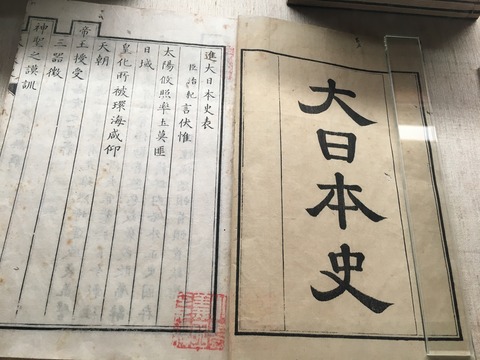 大日本史
進大日本史表
臣治紀言伏惟
太陽攸照率土莫匪
日域
皇化所被環海咸仰
天朝
帝王授受
三器徵
神聖之謨訓